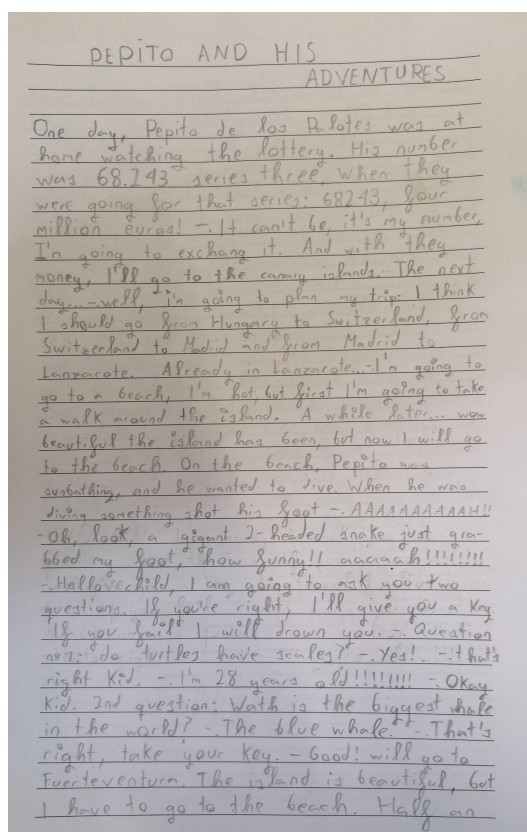 PEPITO AND HIS
ADVENTURES
One day, Pepito de los Palotes was at
home watching the lottery. His number
was 68.243 series three, when they
were going for that series: 68243, four
million euros! -. It can't be, it's my number,
I'm going to exchang it. And with they
money, I'll go to the canary islands. The next
day... -. well, i'm going to plan my trip: I think
I should go from Hungary to Switzerland, from
Switzerland to Madrid and from Madrid to
Lanzarote. Already in Lanzarote... - I'm going to
go to a beach, I'm hot, but first I'm going to take
a walk around the island. A while later... wow
beautiful the island has been, but now I will go
to the beach. On the beach, Pepito was
sunbathing, and he wanted to dive. When he was
diving something shot his foot -. AAAAAAAAAAH!!
-Oh, look, a gigant 2-headed snake just gra-
bbed my foot, how funny!! aaaaah!!!!!!!!!
-. Hello child, I am going to ask you two
questions. If you're right, I'll give you a Key.
If you fail I will drown you. -. Question
nº1: do turtles have scales? -. Yes! -. that's
right Kid. -. I'm 28 years old!!!!!!!! -. Okay
Kid. 2nd question: Wath is the biggest whale
in the world? -. The blue whale. -. That's
right, take your Key. - Good! will go to
Fuerteventura. The island is beautiful, but
I have to go to the beach. Half an